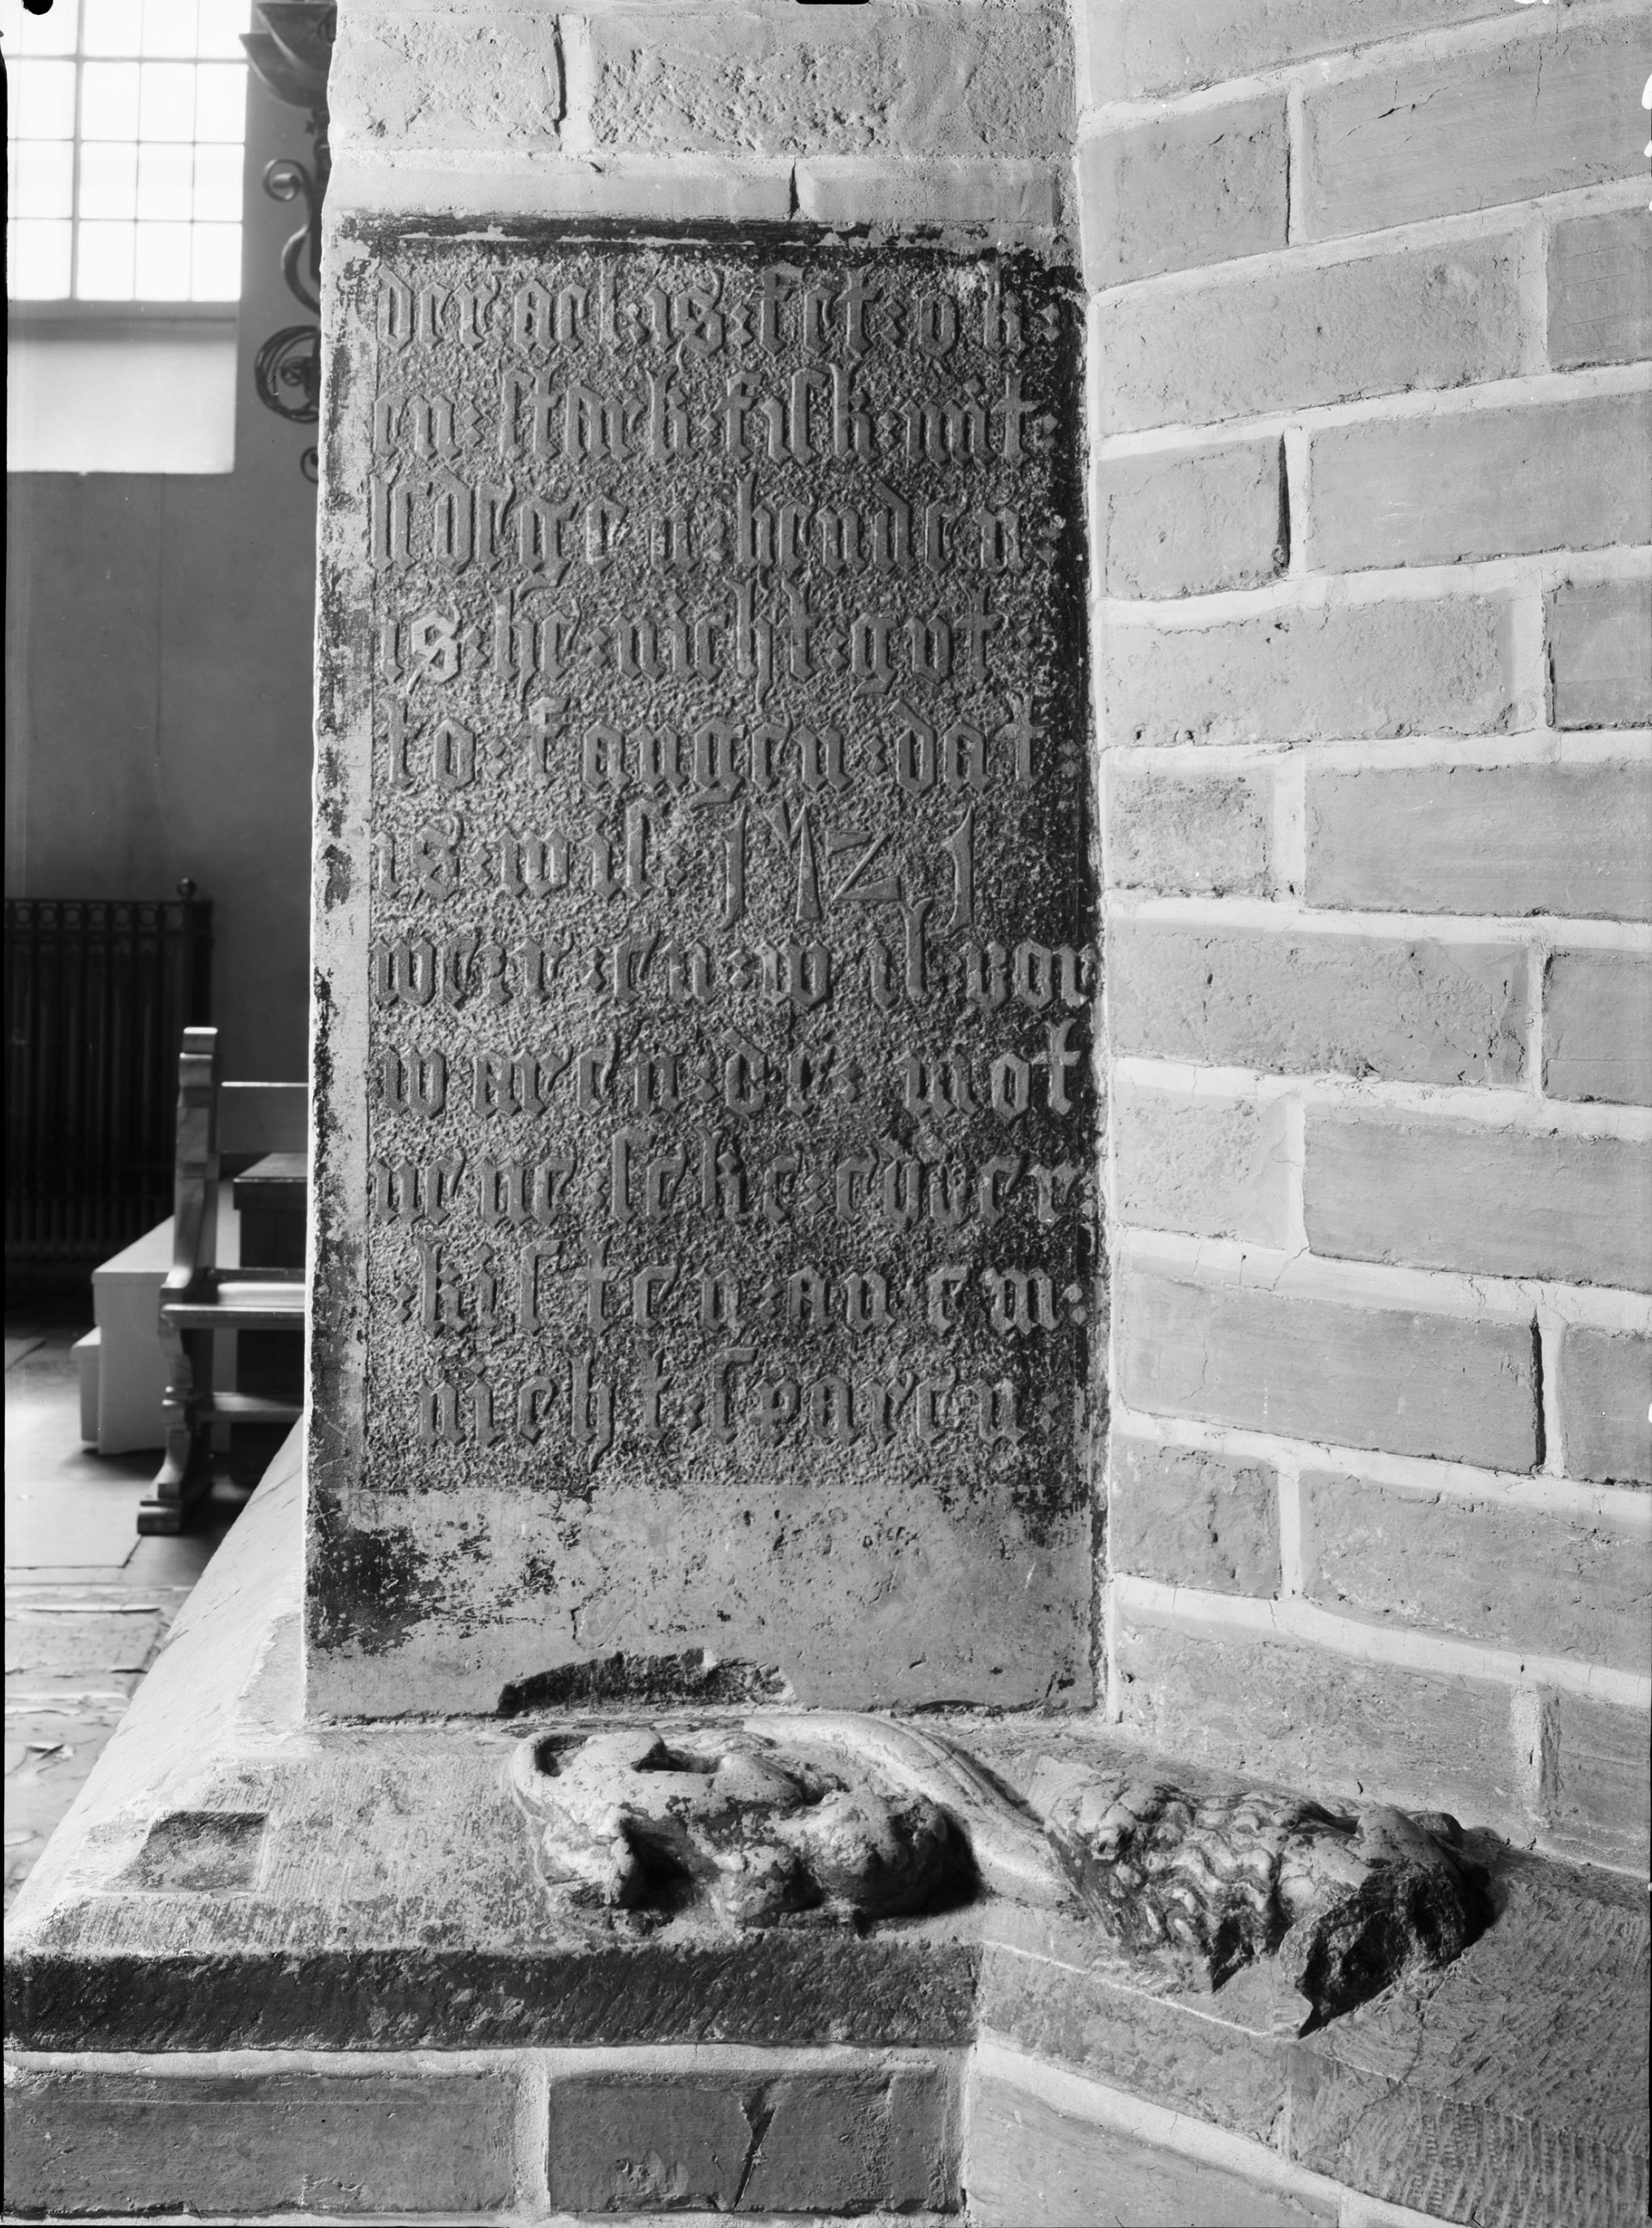 der·ael·is·fet·ok·
en·ſtark·fiſk·mit·
ledegen·henden·
is·he·nicht·gvt·
to·fangen·dat·
is·wiſ·1521
wer·en·wil·vor
waren·de·mot
nene·ſeke·edder·
·kiſten·an·em:
nicht·ſparen·